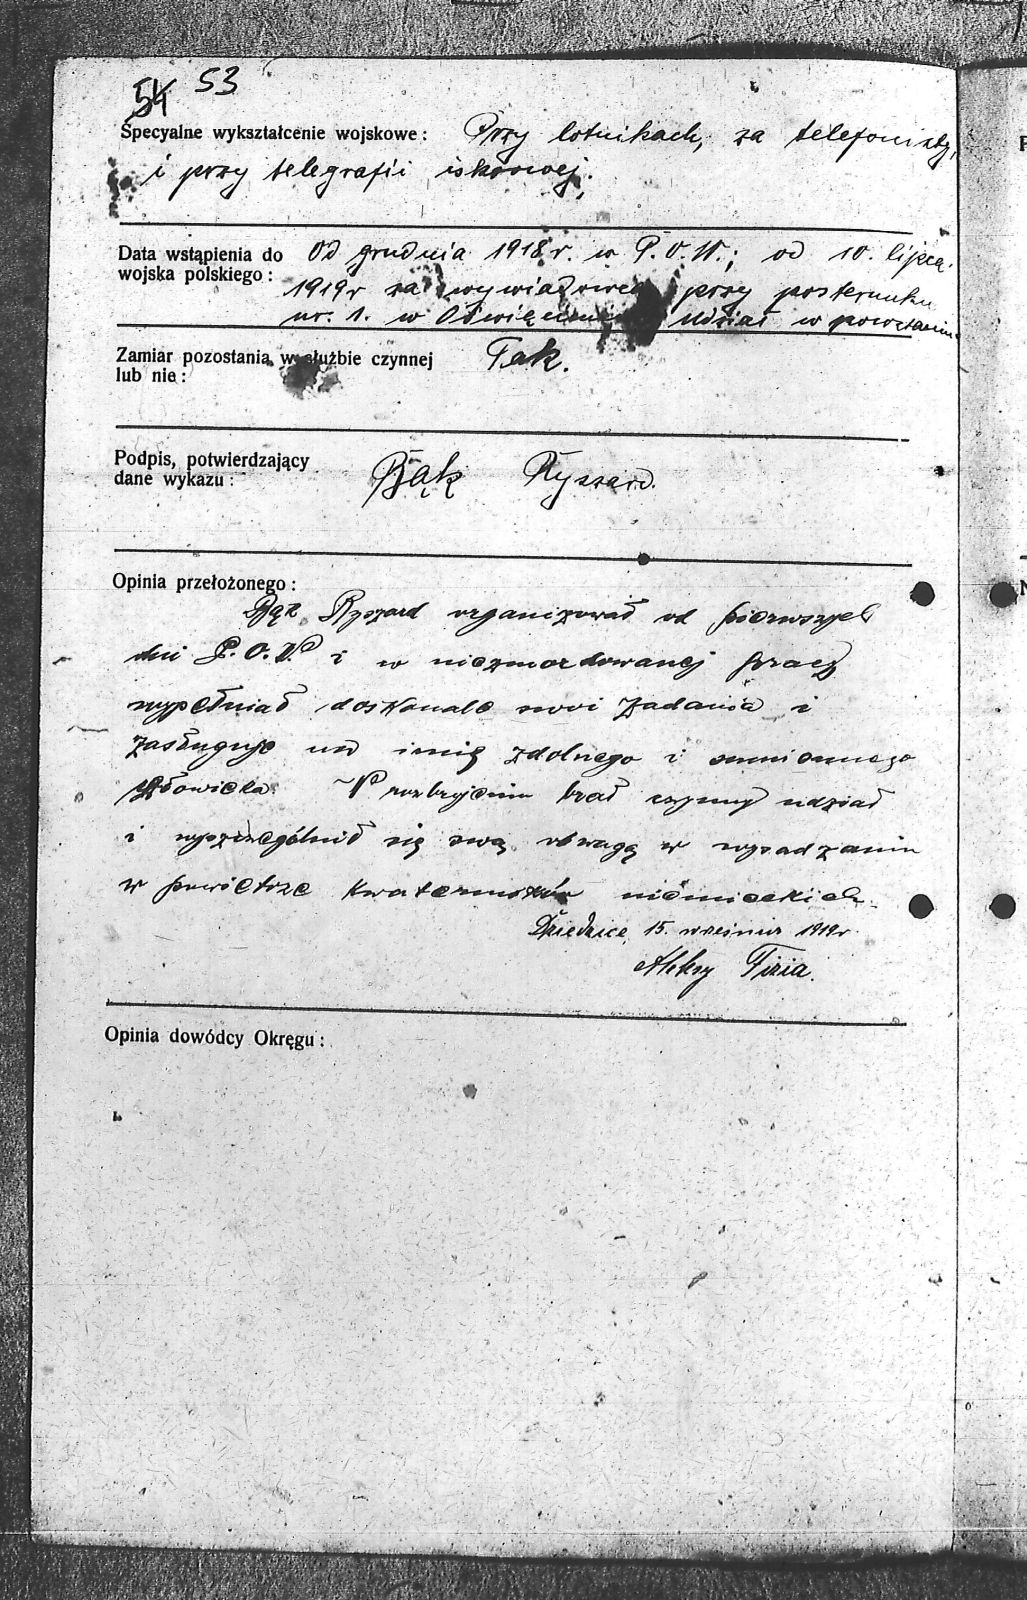 54 53
Specyalne wykształcenie wojskowe: Przy lotnikach, za telefonistę,
i przy telegrafii iskrowej.
Data wstąpienia do wojska polskiego: Od grudnia 1918 r. w P.O.W.; od 10. lipca
1919 r za wywiadowcę przy posterunku
nr. 1. w Oświęcimiu udział w powstaniu
Zamiar pozostania w służbie czynnej lub nie: Tak.
Podpis, potwierdzający dane wykazu: Bąk Ryszard.
Opinia przełożonego:
Bąk Ryszard organizował od pierwszych
dni P.O.W i w niezmordowanej pracy
wypełniał doskonale swoi zadania i
zasługuje na imię zdolnego i sumiennego
człowieka. W rozbrojeniu brał czynny udział
i wyszczególnił się swą odwagą w wysadzaniu
w powietrze kwaterunków niemieckich.
Dziedzice, 15. wrzesnia 1919 r.
Aleksy Firia.
Opinia dowódcy Okręgu: